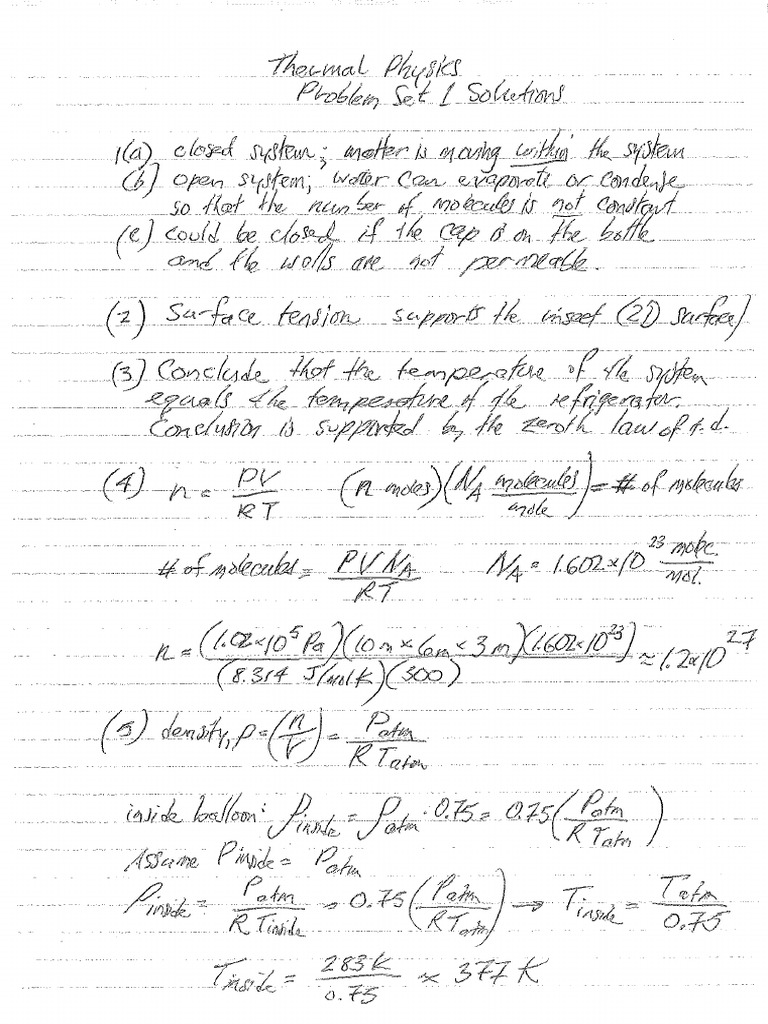 Thermal Physics
Problem Set 1 Solutions
1(a) closed system; matter is moving within the system
(b) open system; water can evaporate or condense
so that the number of molecules is not constant
(c) could be closed if the cap is on the bottle
and the walls are not permeable.
(2) Surface tension supports the insect (2D surface)
(3) Conclude that the temperature of the system
equals the temperature of the refrigerator.
Conclusion is supported by the zeroth law of t.d.
(4) n = PV/RT (n moles)(N_A molecules/mole) = # of molecules
# of molecules = PVN_A/RT N_A = 1.602×10^23 molec./mol.
n = (1.02×10^5 Pa)(10m × 6m × 3m)(1.602×10^23)/(8.314 J/mol K)(300) ≈ 1.2×10^27
(5) density, ρ = (n/V) = P_atm/RT_atm
inside balloon: ρ_inside = ρ_atm · 0.75 = 0.75 (P_atm/RT_atm)
Assume P_inside = P_atm
ρ_inside = P_atm/RT_inside = 0.75 (P_atm/RT_atm) → T_inside = T_atm/0.75
T_inside = 283K/0.75 ≈ 377 K